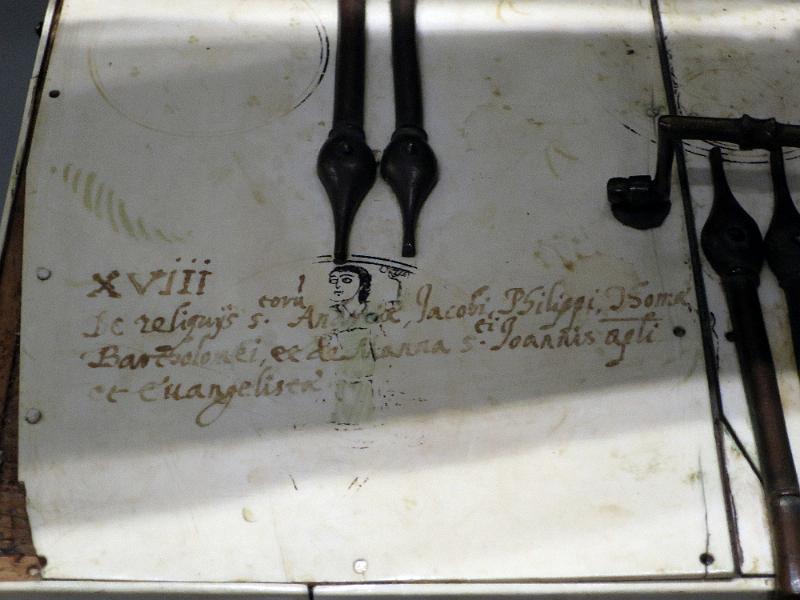 XVIII
De reliquijs s.ctorũ Andreæ, Jacobi, Philippi, Thomæ
Bartholomei, et de Manna s.ti Joannis apli
et Euangelistæ